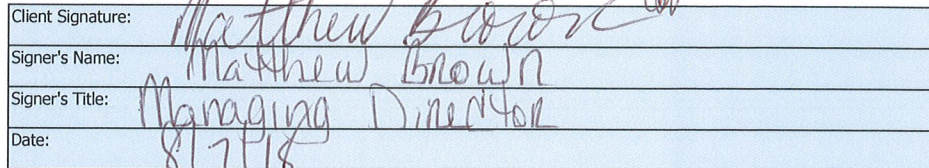 Client Signature: Matthew Brown
Signer's Name: Matthew Brown
Signer's Title: Managing Director
Date: 8/7/18